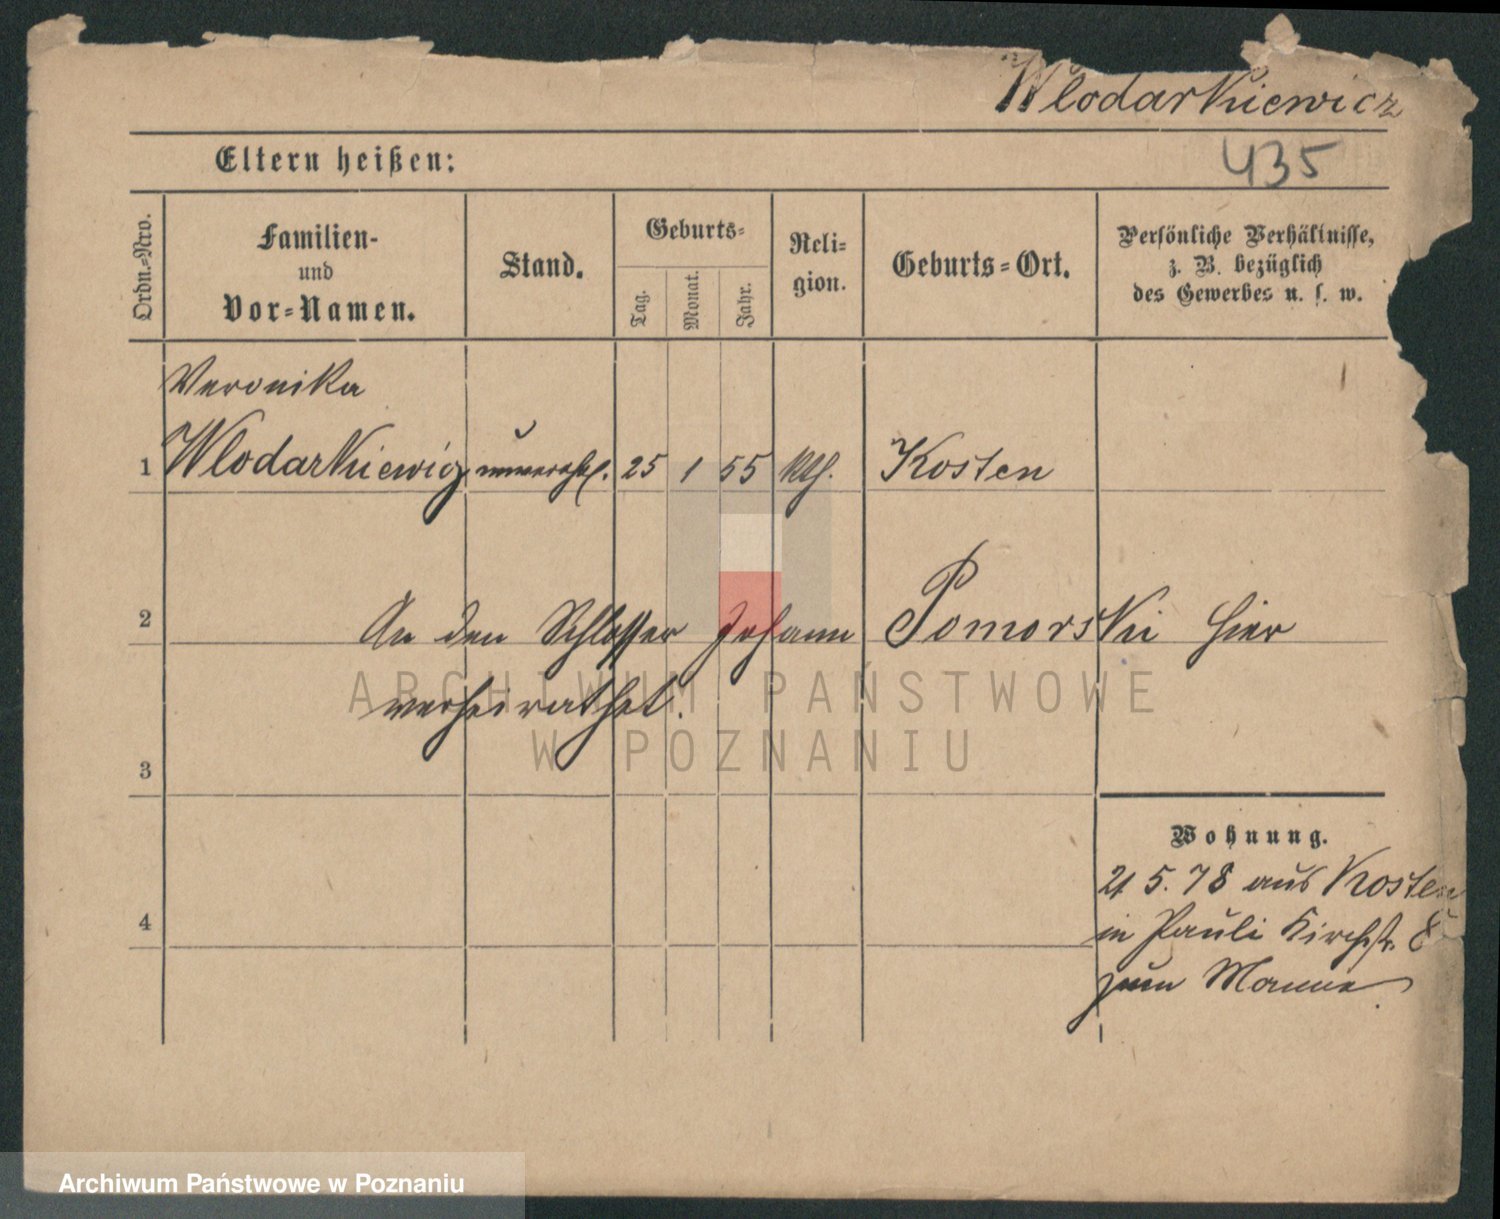 Wlodarkiewicz
Eltern heißen:
435
Ordn.-Nro.
Familien-
und
Vor-Namen.
Stand.
Geburts-
Tag.
Monat.
Jahr.
Reli-
gion.
Geburts-Ort.
Persönliche Verhältnisse,
z. B. bezüglich
des Gewerbes u. s. w.
Veronika
1 Wlodarkiewicz unverehl. 25 1 55 kth. Kosten
2 An den Schlosser Johann Pomorski hier
verheirathet.
ARCHIWUM PAŃSTWOWE
W POZNANIU
3
Wohnung.
21 5. 78 aus Kosten
4 in Pauli Kirchstr. 8
zum Manne
Archiwum Państwowe w Poznaniu